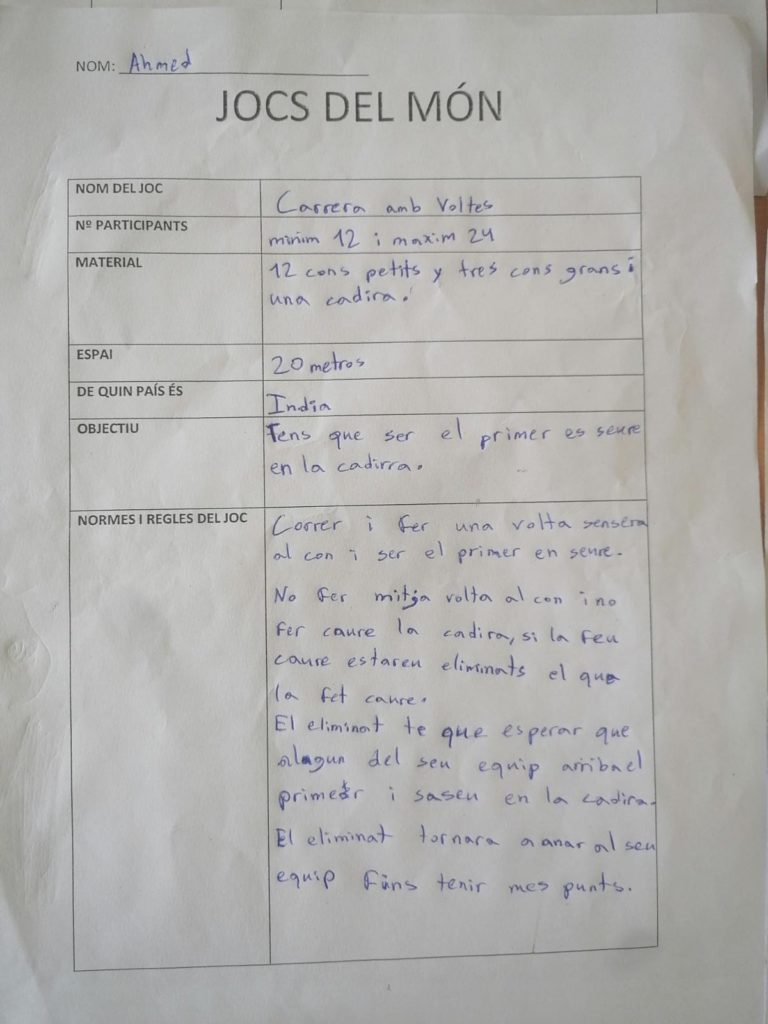 NOM: Ahmed
JOCS DEL MÓN
NOM DEL JOC
Carrera amb Voltes
Nº PARTICIPANTS
minim 12 i maxim 24
MATERIAL
12 cons petits y tres cons grans i
una cadira.
ESPAI
20 metros
DE QUIN PAÍS ÉS
India
OBJECTIU
Tens que ser el primer es seure
en la cadirra.
NORMES I REGLES DEL JOC
Correr i fer una volta sensera
al con i ser el primer en seure.
No fer mitja volta al con i no
fer caure la cadira, si la feu
caure estaren eliminats el que
la fet caure.
El eliminat te que esperar que
alagun del seu equip arriba el
primer i saseu en la cadira.
El eliminat tornara a anar al seu
equip fins tenir mes punts.